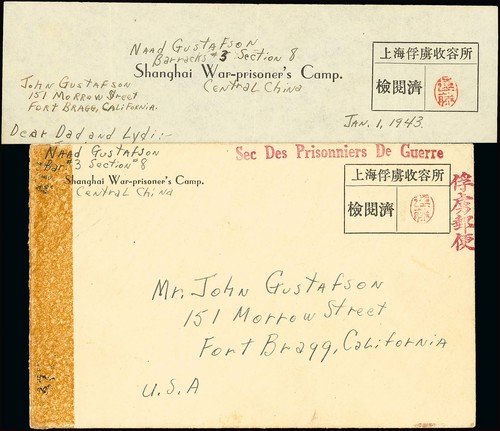 Naad Gustafson
Barracks #3 Section 8
Shanghai War-prisoner's Camp.
Central China
John Gustafson
151 Morrow Street
Fort Bragg, California.
上海俘虜收容所
檢閱濟
Jan. 1, 1943.
Dear Dad and Lydi:-
Sec Des Prisonniers De Guerre
Naad Gustafson
Bar #3 Section #8
Shanghai War-prisoner's Camp.
Central China
上海俘虜收容所
檢閱濟
俘虜郵便
Mr. John Gustafson
151 Morrow Street
Fort Bragg, California
U.S.A